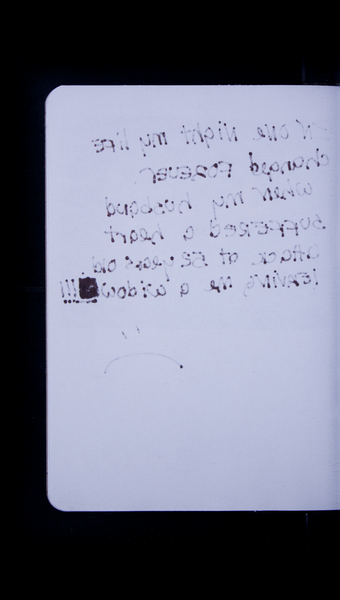 IN one Night my liFE
changed FOREVER
when my husband
SUFFERED a heart
attack at 52 years old
LEAVING me a widow !!!